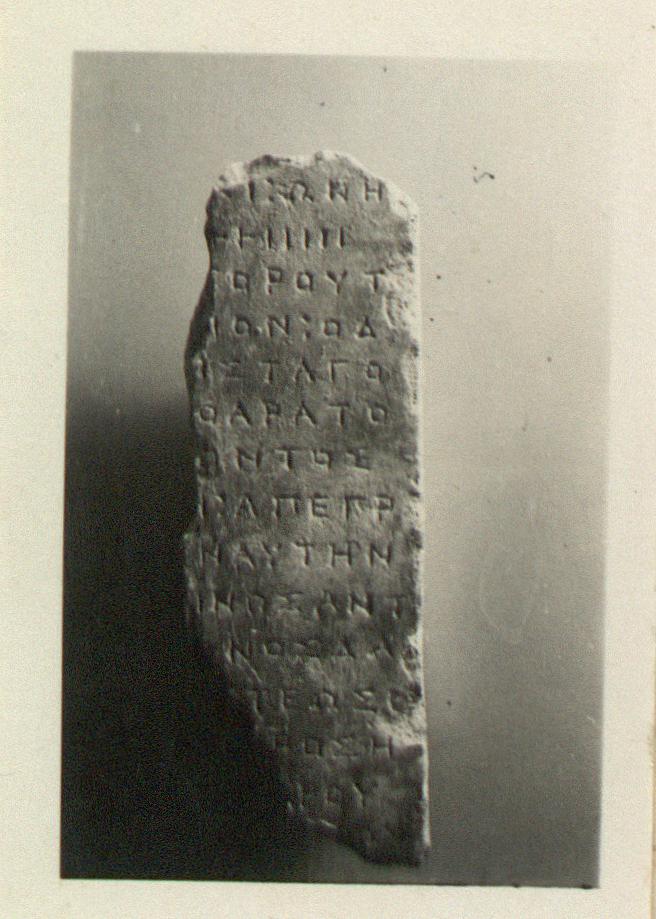 ΙΞΩΝΗ
ΗΙΙΙΙΙ
ΟΡΟΥΤ
ΙΟΝ:ΟΔ
ΙΣΤΑΓΟ
ΟΑΡΑΤΟ
ΟΝΤΟΣ
:ΑΠΕΓΡ
ΝΑΥΤΗΝ
ΙΝΟΣΑΝΤ
ΝΟΣΔΑ
ΤΕΩΣΟ
ΟΣΗ
ΟΥ